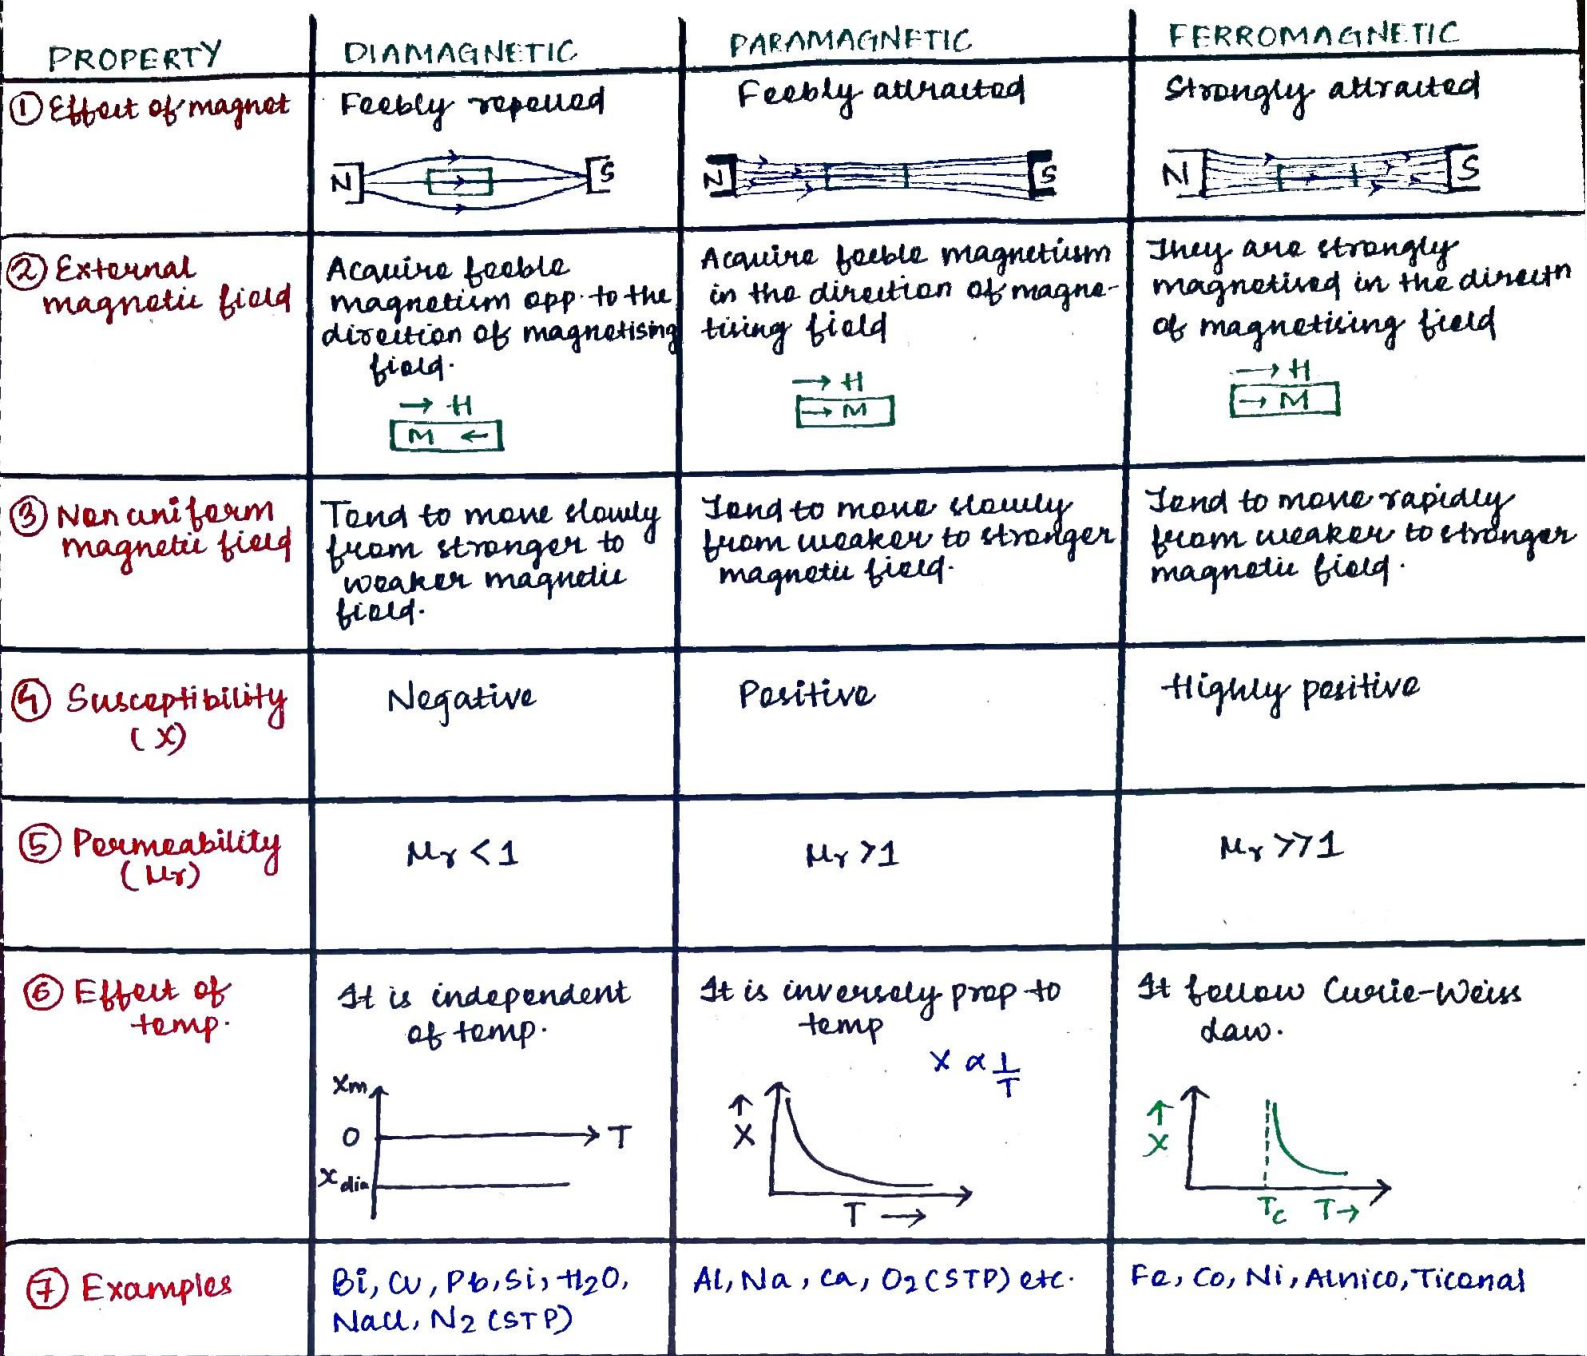 PROPERTY
DIAMAGNETIC
PARAMAGNETIC
FERROMAGNETIC
① Effect of magnet
Feebly repelled
N S
Feebly attracted
N S
Strongly attracted
N S
② External
magnetic field
Acquire feeble
magnetism opp. to the
direction of magnetising
field.
→ H
M ←
Acquire feeble magnetism
in the direction of magne-
tising field
→ H
→ M
They are strongly
magnetised in the directn
of magnetising field
→ H
→ M
③ Non uniform
magnetic field
Tend to move slowly
from stronger to
weaker magnetic
field.
Tend to move slowly
from weaker to stronger
magnetic field.
Tend to move rapidly
from weaker to stronger
magnetic field.
④ Susceptibility
(χ)
Negative
Positive
Highly positive
⑤ Permeability
(μr)
μr < 1
μr > 1
μr >> 1
⑥ Effect of
temp.
It is independent
of temp.
χm
0
T
χdia
It is inversely prop to
temp
χ ∝ 1/T
↑
χ
T →
It follow Curie-Weiss
Law.
↑
χ
Tc T→
⑦ Examples
Bi, Cu, Pb, Si, H2O,
NaCl, N2 (STP)
Al, Na, Ca, O2 (STP) etc.
Fe, Co, Ni, Alnico, Ticonal